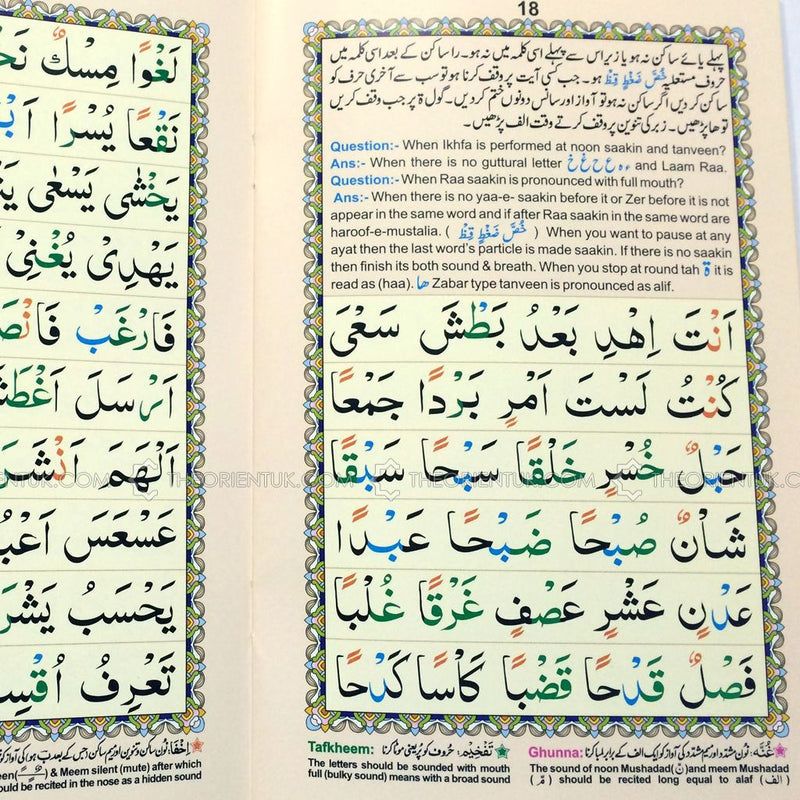 18
پہلے یائے ساکن نہ ہو یا زیر اس سے پہلے اسی کلمہ میں نہ ہو۔ را ساکن کے بعد اسی کلمہ میں
حروف مستعلیہ خُصَّ ضَغْطٍ قِظْ ہو۔ جب کسی آیت پر وقف کرنا ہو تو سب سے آخری حرف کو
ساکن کر دیں اگر ساکن نہ ہو تو آواز اور سانس دونوں ختم کر دیں۔ گول ة پر جب وقف کریں
تو ھا پڑھیں۔ زبر کی تنوین پر وقف کرتے وقت الف پڑھیں۔
Question:- When Ikhfa is performed at noon saakin and tanveen?
Ans:- When there is no guttural letter ء ہ ع ح غ خ and Laam Raa.
Question:- When Raa saakin is pronounced with full mouth?
Ans:- When there is no yaa-e- saakin before it or Zer before it is not
appear in the same word and if after Raa saakin in the same word are
haroof-e-mustalia. ( خُصَّ ضَغْطٍ قِظْ ) When you want to pause at any
ayat then the last word's particle is made saakin. If there is no saakin
then finish its both sound & breath. When you stop at round tah ة it is
read as (haa). ھا Zabar type tanveen is pronounced as alif.
اَنْتَ اِهْدِ بَعْدُ بَطْشَ سَعْىَ
كُنْتُ لَسْتَ اَمْرٍ بَرْدًا جَمْعًا
حَبْلٌ خُسْرٍ خَلْقًا سَبْحًا سَبْقًا
شَاْنٌ صُبْحًا ضَبْحًا عَبْدًا
عَدْنٍ عَشْرٍ عَصْفٍ غَرْقًا غُلْبًا
فَصْلٌ قَدْحًا قَضْبًا كَاْسًا كَدْحًا
غُنَّہ: نون مشدد اور میم مشدد کی آواز کو ایک الف کے برابر لمبا کرنا
Ghunna:
The sound of noon Mushadad(نّ)and meem Mushadad
(مّ) should be recited long equal to alaf (الف)
تَفْخِیْم: حروف کو پُر یعنی موٹا کرنا
Tafkheem:
The letters should be sounded with mouth
full (bulky sound) means with a broad sound
لَغْوًا مِسْكٌ
نَقْعًا يُسْرًا
يَخْشٰى يَسْعٰى
يَهْدِىْ يُغْنِىْ
فَارْغَبْ
اَرْسَلَ
اَلْهَمَ
عَسْعَسَ
يَحْسَبُ
تَعْرِفُ
& Meem silent (mute) after which
be recited in the nose as a hidden sound
THEORIENTUK.COM
THEORIENTUK.COM